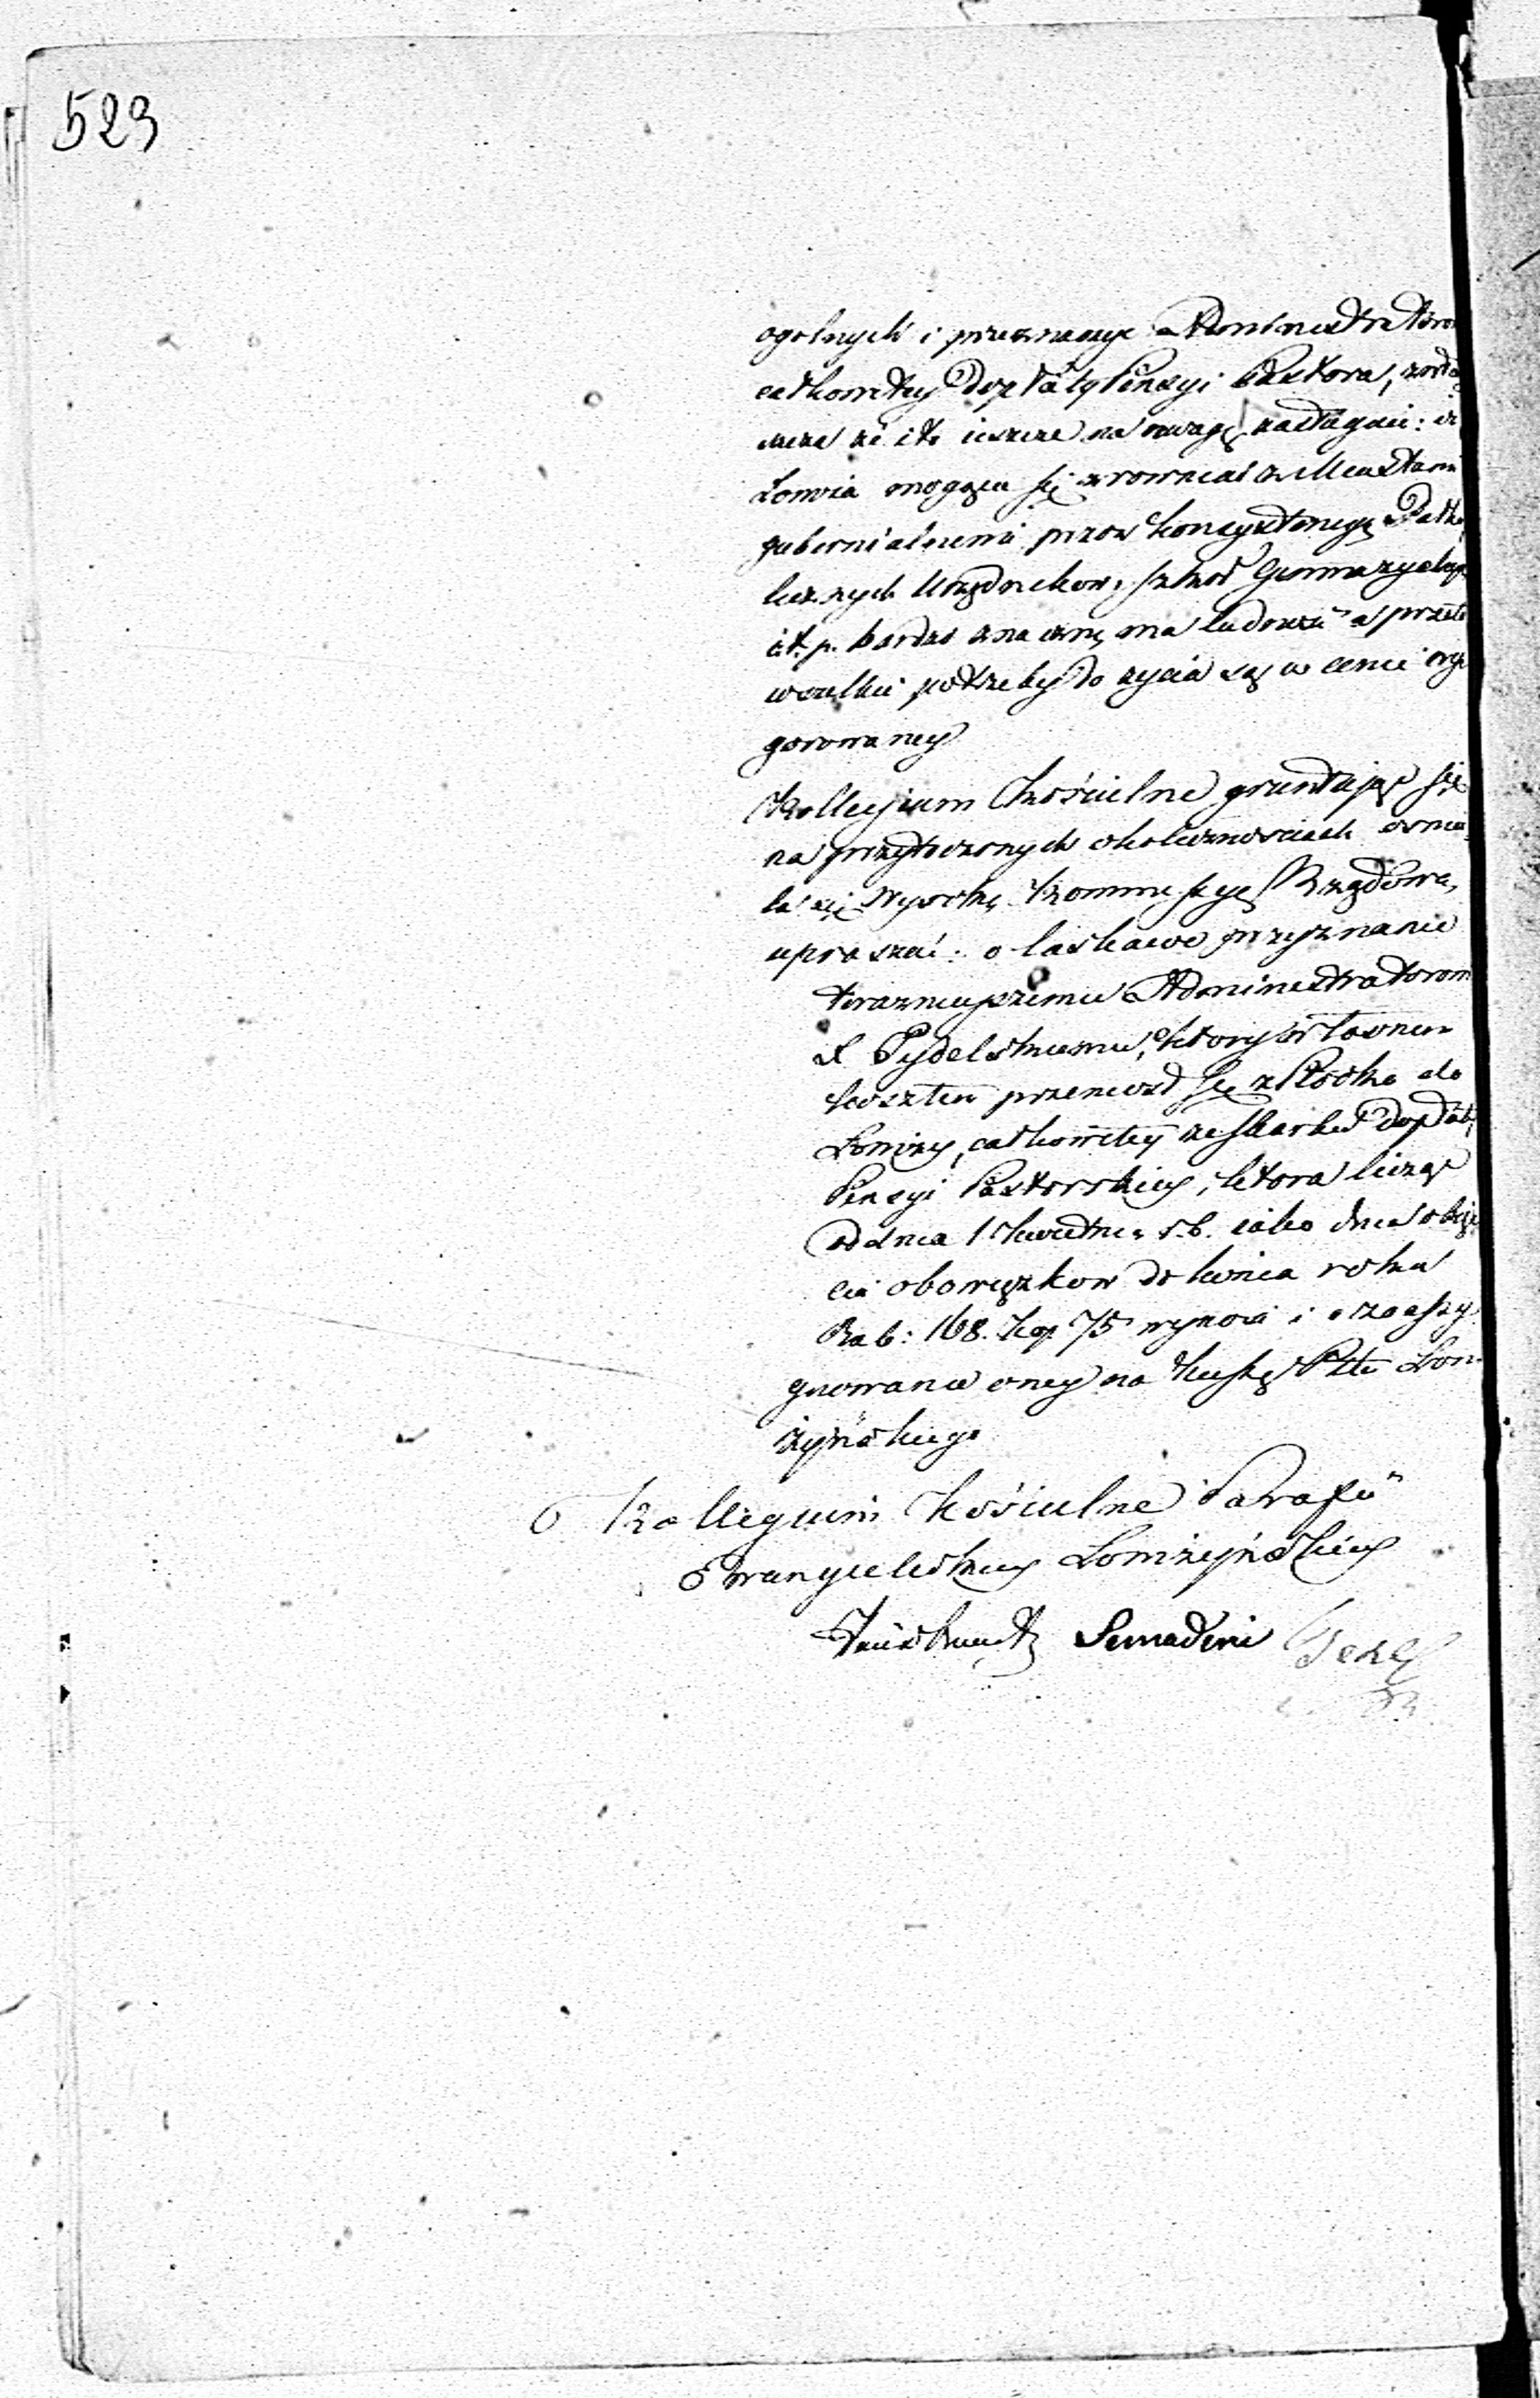 523
ogolnych i przeznaczyć Administratorowi
całkowitey dopłaty Pensyi Pastora, zwła
szcza że i to ieszcze na uwagę zasługuie: iż
Łomża mogąca się zrownać z Miastami
gubernialnemi przez konsystencyę Pułku
licznych Urzędnikow, szkoł Gimnazyalnych
i t. p. bardzo znaczną ma ludność a przeto
wszelkie potrzeby do życia są w cenie wy
gorowaney
Kollegium Kościelne gruntując się
na przytoczonych okolicznościach osmie
la się Wysoką Kommissyę Rządową
upraszać: o łaskawe przyznanie
teraznieyszemu Administratorowi
X Pydelskiemu, ktory własnem
kosztem przeniosł się z Płocka do
Łomży, całkowitey ze Skarbu dopłaty
Pensyi Pastorskiey, ktora licząc
od dnia 1 Kwietnia r. b. iako dnia obję
cia obowiązkow do końca roku
Rub: 168. kop 75 wynosi i o zaassy
gnowanie oney na Kassę Pttu Łom
żyńskiego
Kollegium Kościelne Parafii
Ewangielickiey Łomżyńskiey
Semadeni